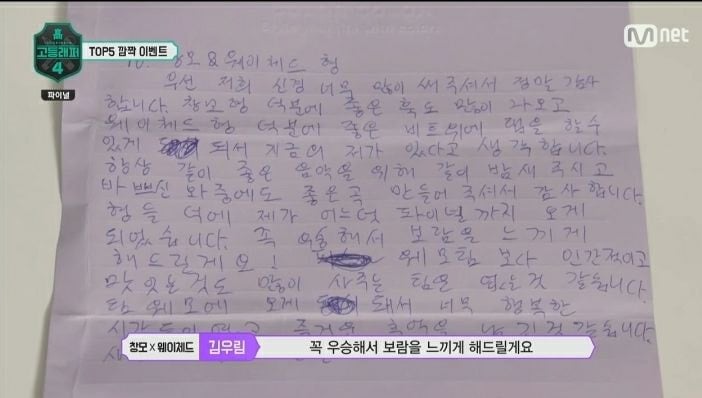 고등래퍼
4
파이널
TOP5 깜짝 이벤트
Mnet
To. 창모 & 웨이체드 형
우선 저희 신경 너무 많이 써주셔서 정말 감사
합니다. 창모형 덕분에 좋은 훅도 많이 나오고
웨이체드 형 덕분에 좋은 비트위에 랩을 할수
있게 되서 지금의 제가 있다고 생각합니다.
항상 같이 좋은 음악을 위해 같이 밤새 주시고
바쁘신 와중에도 좋은곡 만들어 주셔서 감사합니다.
형들 덕에 제가 어느덧 파이널까지 오게
되었습니다. 꼭 우승해서 보람을 느끼게
해드릴게요! 웨모팀 보다 인간적이고
맛있는것도 많이 사주는 팀은 없는것 같습니다.
팀 웨모에 오게 돼서 너무 행복한
창모×웨이체드 김우림 꼭 우승해서 보람을 느끼게 해드릴게요